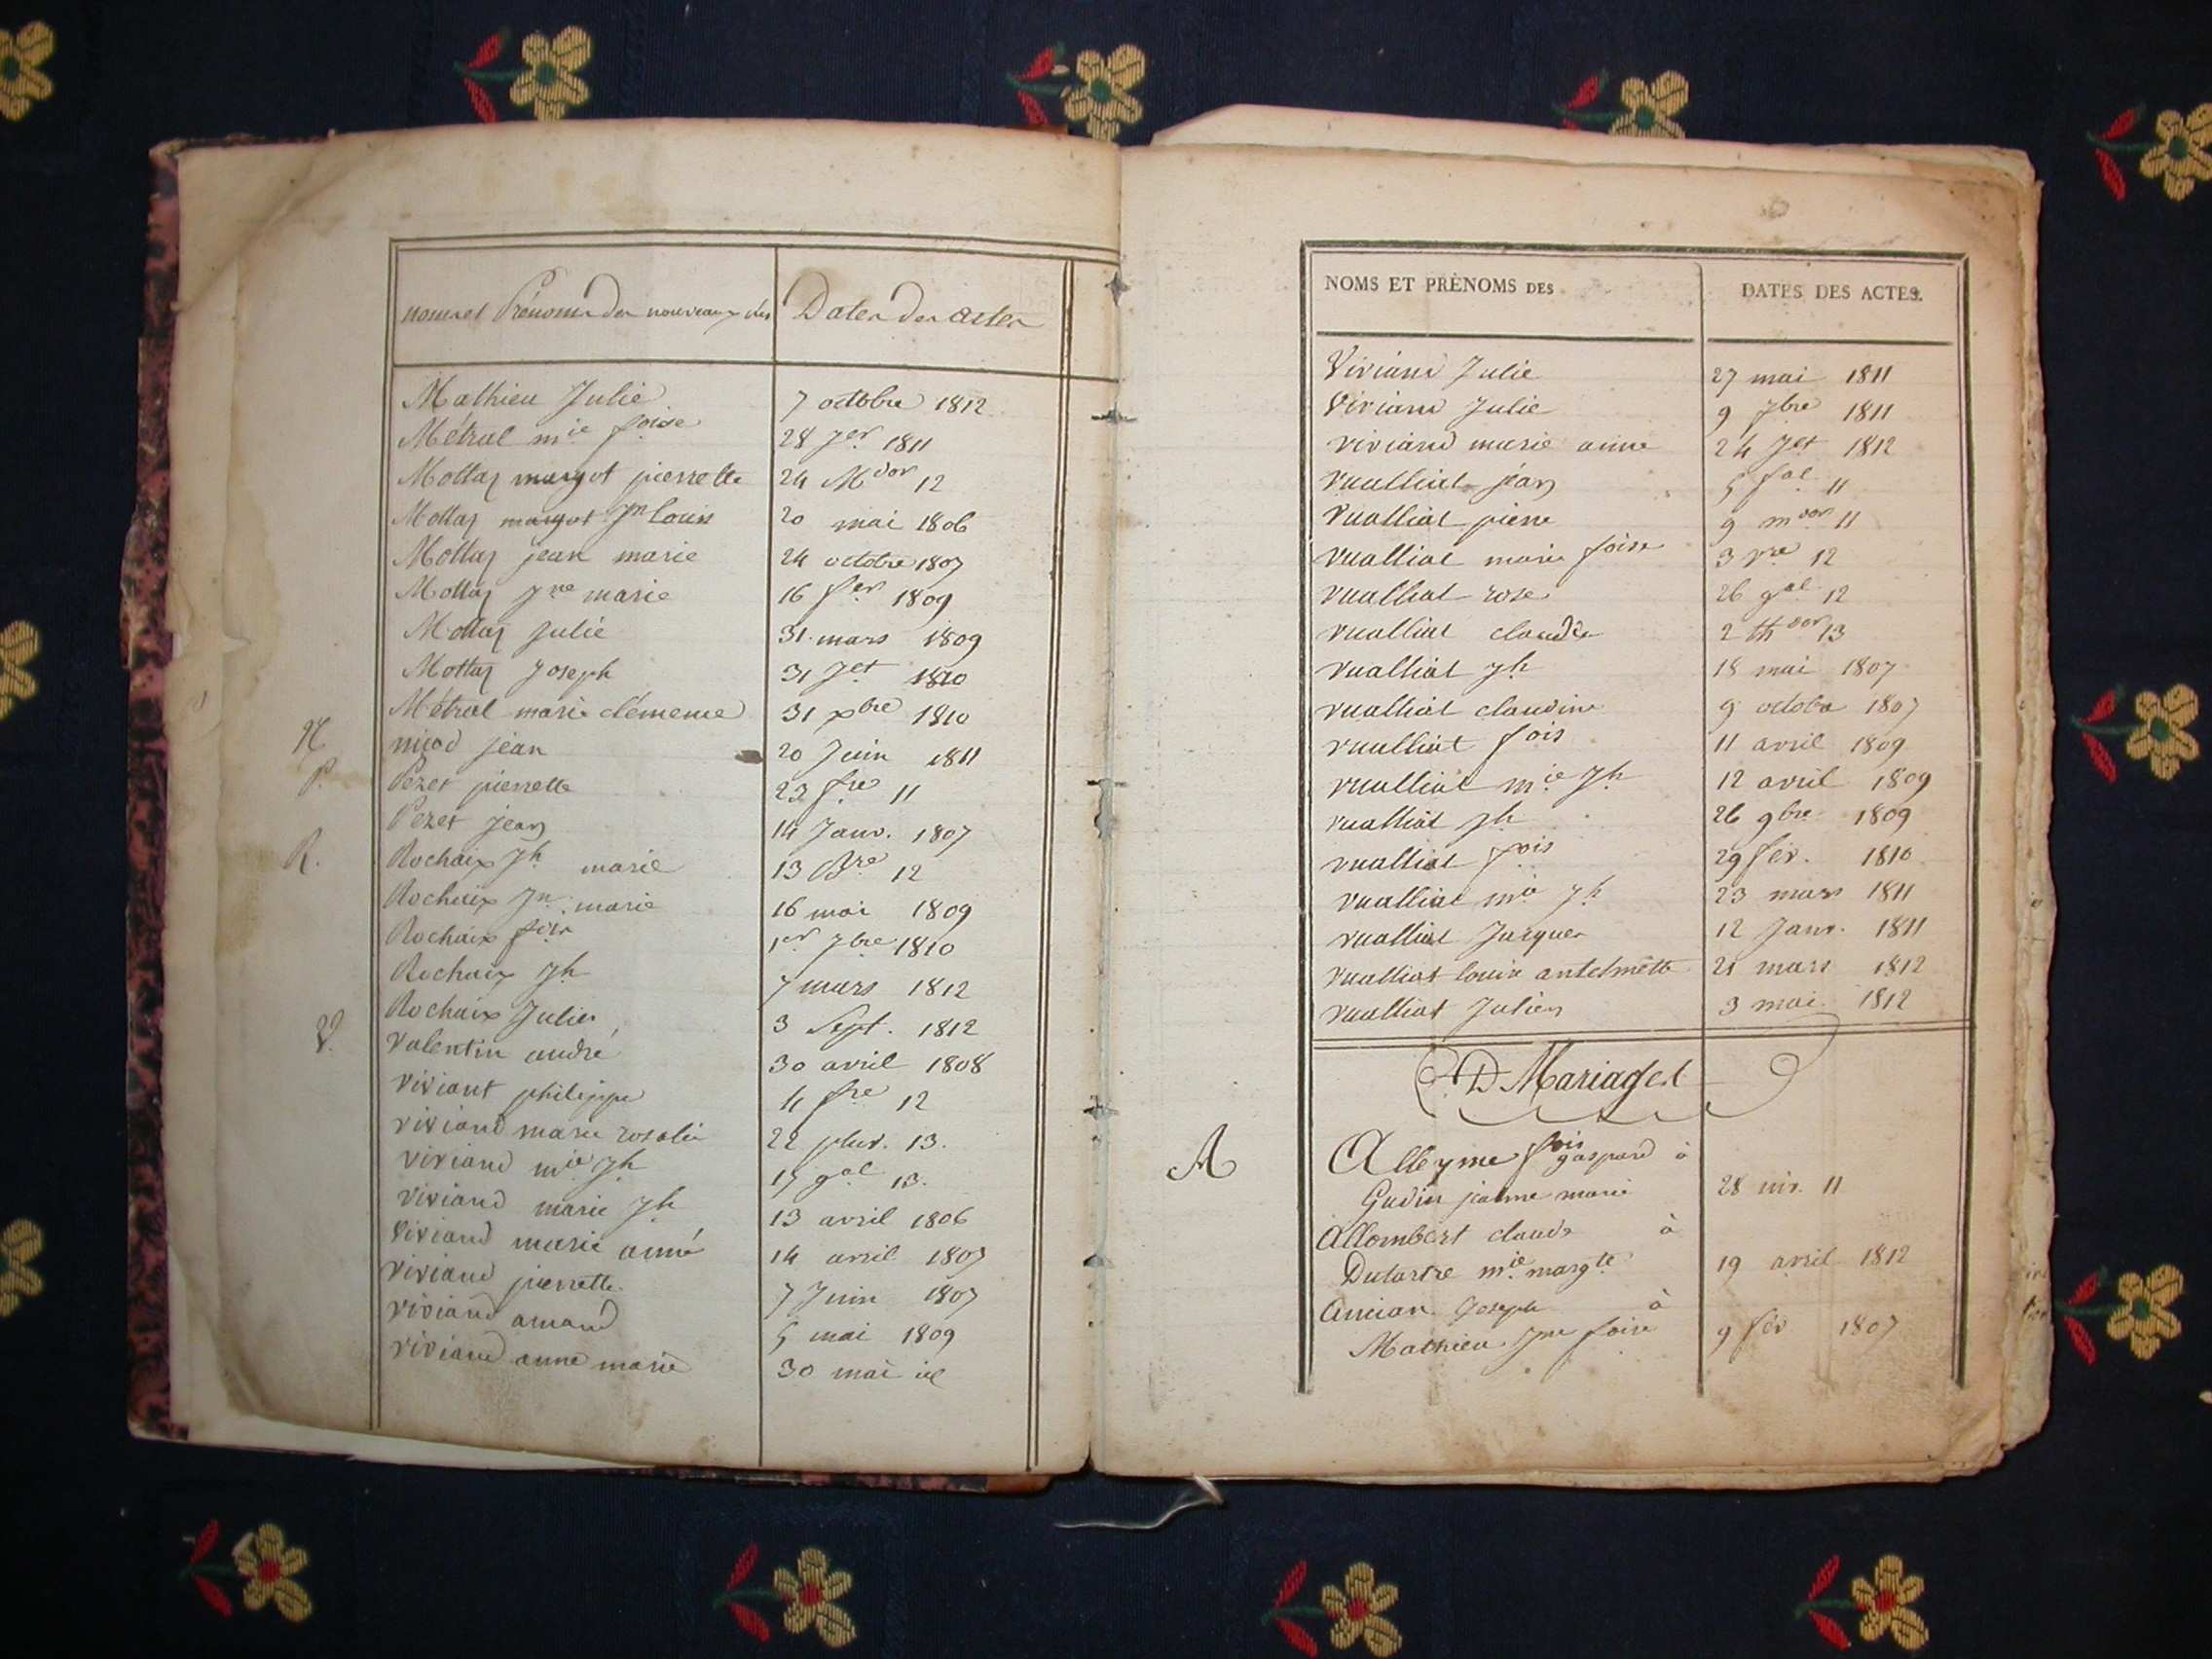 noms et Prénoms des nouveaux nés Dates des actes
Mathieu Julie 7 octobre 1812
Métral mie foise 28 Jer 1811
Mottaz margot pierrette 24 Mdor 12
Mottaz margot Jn Louis 20 mai 1806
Mottaz jean marie 24 octobre 1807
Mottaz Jne marie 16 fer 1809
Mottaz Julie 31 mars 1809
Mottaz Joseph 31 Jet 1810
Métral marie clémence 31 xbre 1810
N nicod jean 20 Juin 1811
P. Pezet pierrette 22 fre 11
Pezet jean 14 Janv. 1807
R. Rochaix Jh marie 13 Bre 12
Rochaix Jn marie 16 mai 1809
Rochaix fois 1er 7bre 1810
Rochaix Jh 7 mars 1812
Rochaix Julie 3 Sept. 1812
V. Valentin andré 30 avril 1808
Viviant philippe 4 fre 12
viviand marie rosalie 22 pluv. 13.
viviand mie Jh 15 gal 13.
viviand marie Jh 13 avril 1806
Viviand marie anne 14 avril 1807
viviand pierrette. 7 Juin 1807
viviand amand 5 mai 1809
viviand anne marie 30 mai
NOMS ET PRÉNOMS DES DATES DES ACTES.
Viviand Julie 27 mai 1811
Viviand Julie 9 7bre 1811
viviand marie anne 24 Jet 1812
vualliat jean 5 fal 11
vualliat pierre 9 mdor 11
vualliat marie foise 3 vre 12
vualliat rose 26 gal 12
vualliat claude 2 thdor 13
vualliat Jh 18 mai 1807
vualliat claudine 9 octobre 1807
vualliat fois 11 avril 1809
vualliat mie Jh 12 avril 1809
vualliat Jh 26 9bre 1809
vualliat fois 29 fév. 1810
vualliat mie Jh 23 mars 1811
vualliat Jacques 12 Janv. 1811
vualliat louise antelmette 21 mars 1812
vualliat Julien 3 mai 1812
Mariages
A Alleyme fois gaspard à
Gudin jeanne marie 28 niv. 11
Allombert claude à
Dutartre mie margte 19 avril 1812
Ancian Joseph à
Mathieu Jne foise 9 fév 1807